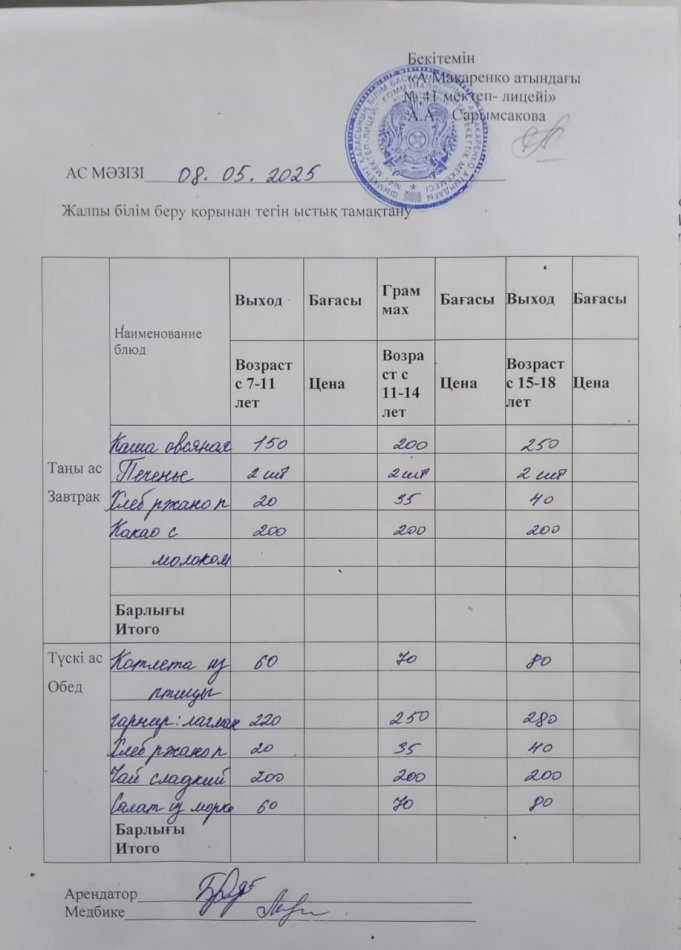 Бекітемін
«А Макаренко атындағы
№ 41 мектеп- лицейі»
А.А Сарымсакова
АС МӘЗІЗІ 08. 05. 2025
Жалпы білім беру қорынан тегін ыстық тамақтану
Наименование блюд Выход Бағасы Грам мах Бағасы Выход Бағасы
Возраст с 7-11 лет Цена Возра ст с 11-14 лет Цена Возраст с 15-18 лет Цена
Таңы ас
Завтрак
Каша овсяная 150 200 250
Печенье 2 шт 2 шт 2 шт
Хлеб ржано п 20 35 40
Какао с 200 200 200
молоком
Барлығы
Итого
Түскі ас
Обед
Котлета из 60 70 80
птицы
гарнир: лагман 220 250 280
Хлеб ржано п 20 35 40
Чай сладкий 200 200 200
Салат из морко 60 70 80
Барлығы
Итого
Арендатор
Медбике